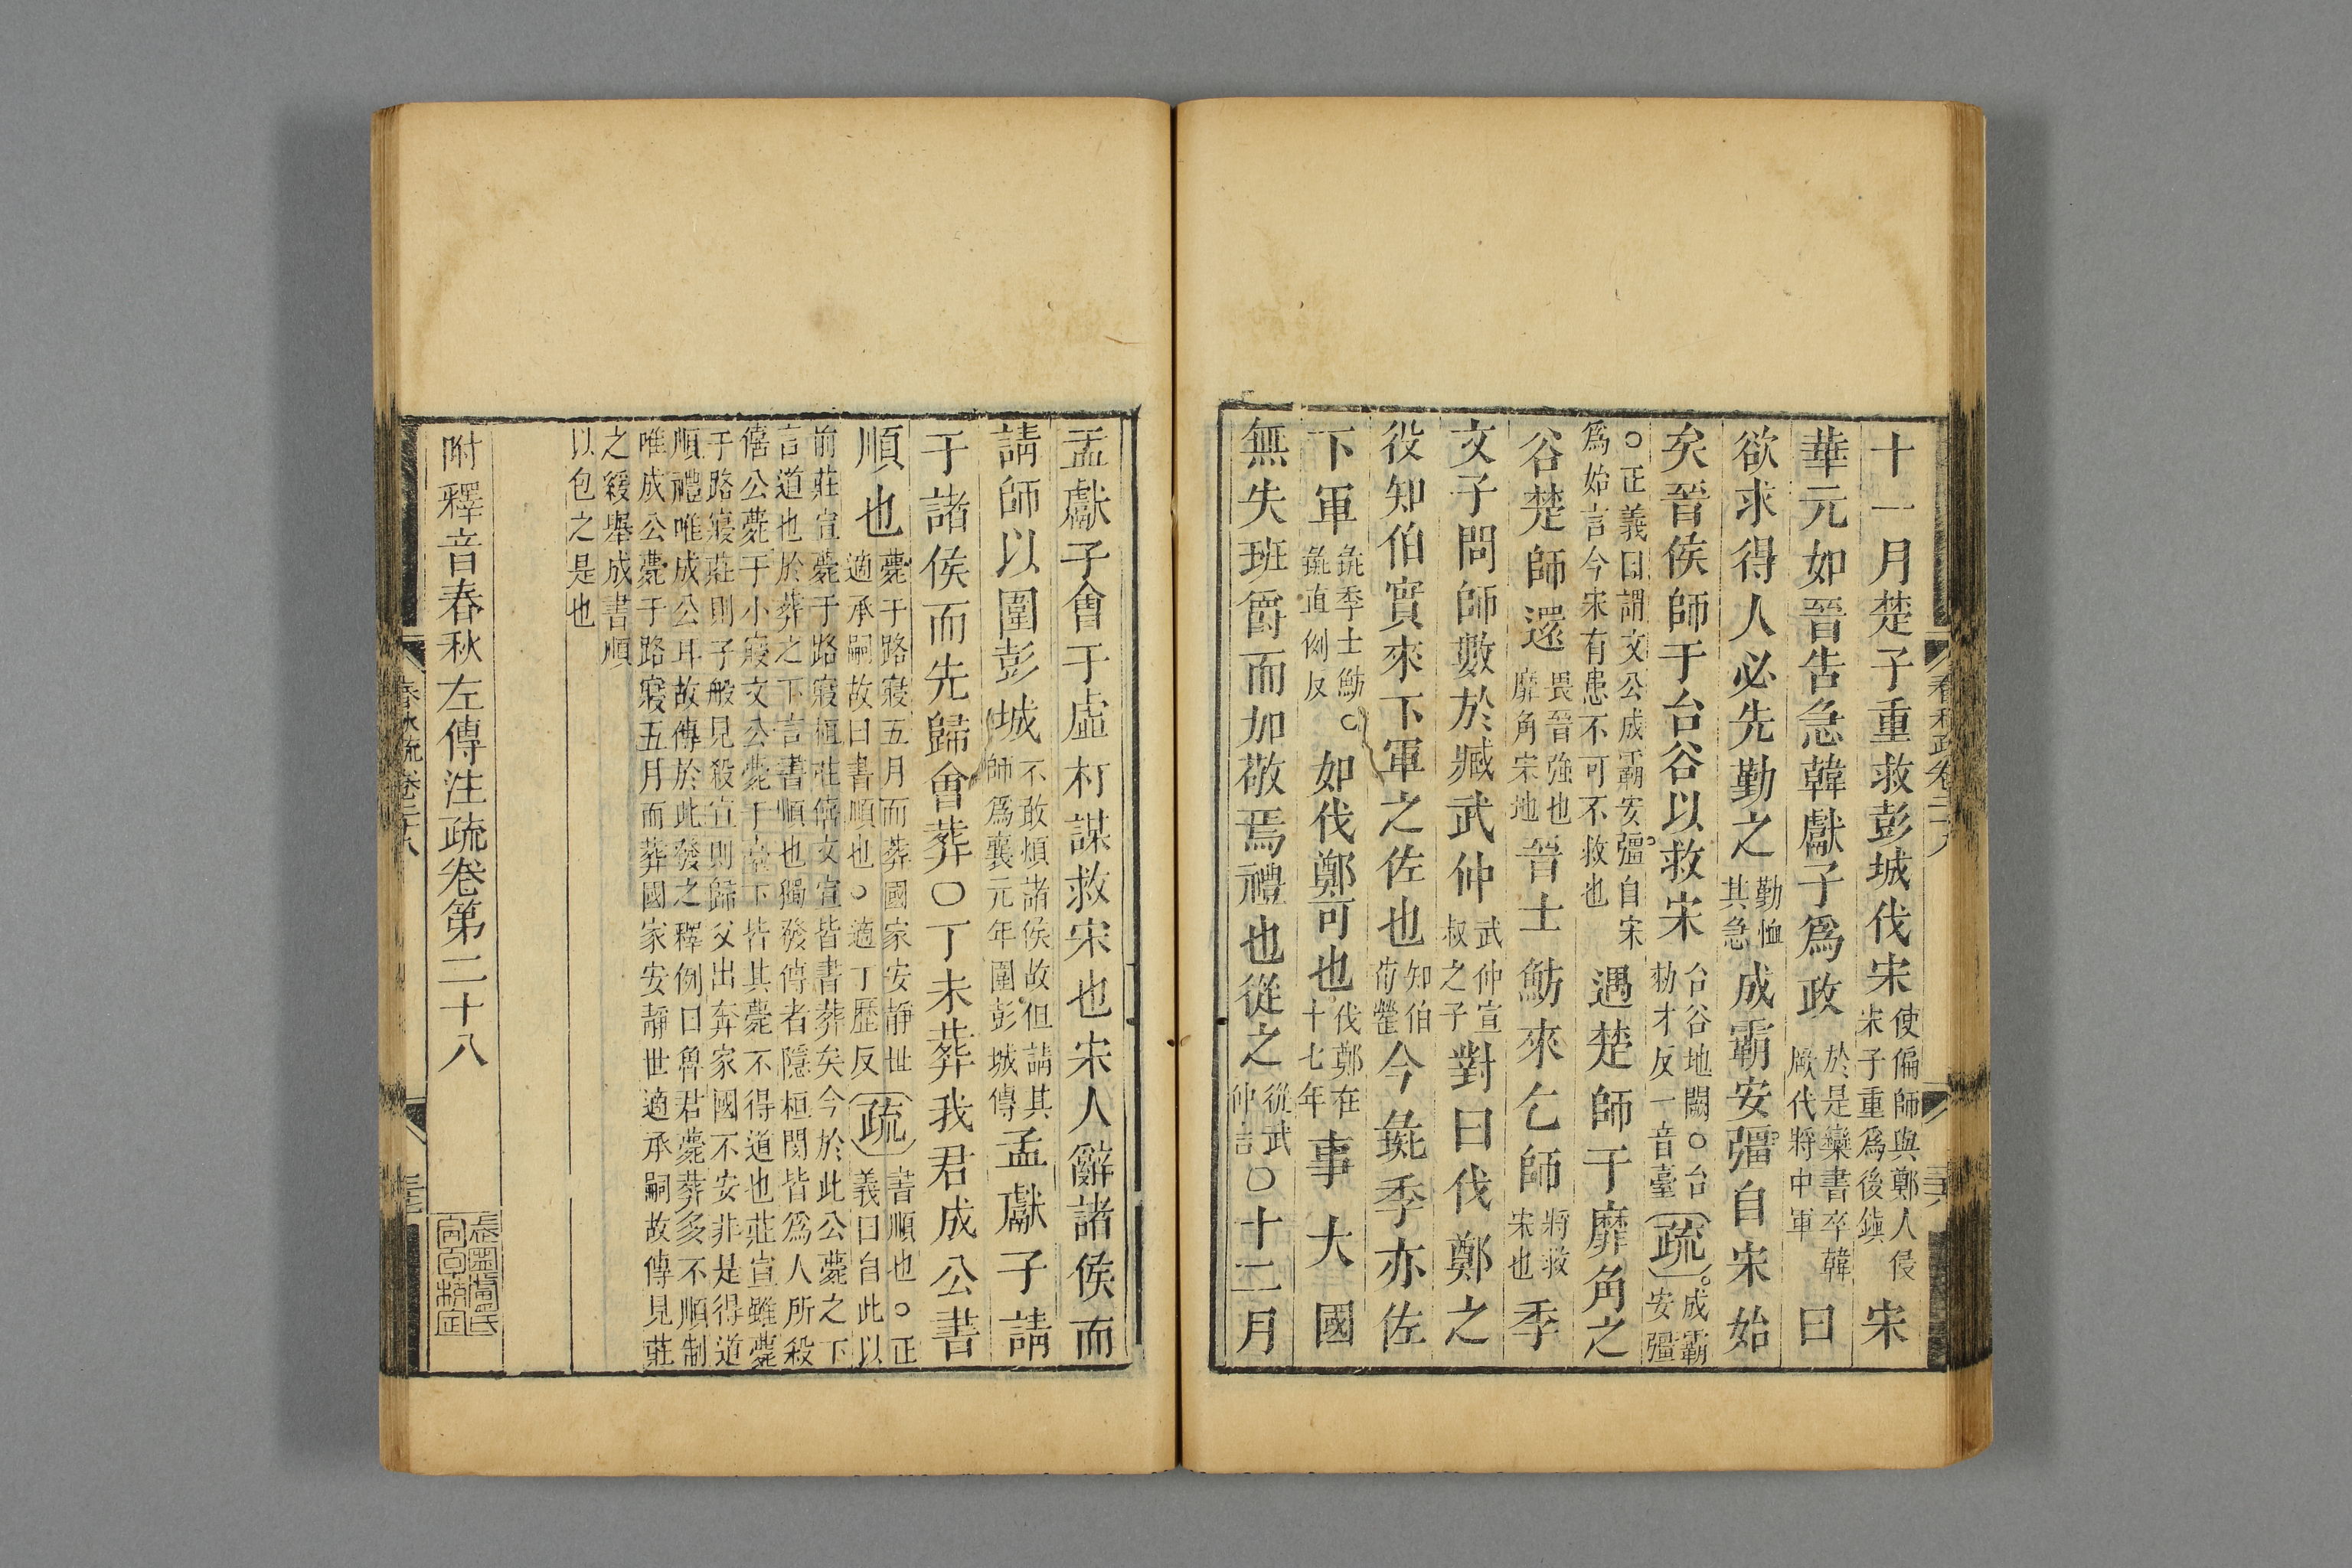 十一月楚子重救彭城伐宋使偏師與鄭人侵宋子重爲後鎮宋
華元如晉告急韓獻子爲政於是欒書卒韓厥代將中軍曰
欲求得人必先勤之勤恤其急成霸安彊自宋始
矣晉侯師于台谷以救宋台谷地闕○台勑才反一音臺疏成霸安彊
○正義曰謂文公成霸安彊自宋爲始言今宋有患不可不救也遇楚師于靡角之
谷楚師還畏晉強也靡角宋地晉士魴來乞師將救宋也季
文子問師數於臧武仲武仲宣叔之子對曰伐鄭之
役知伯實來下軍之佐也知伯荀罃今彘季亦佐
下軍彘季士魴○彘直例反如伐鄭可也伐鄭在十七年事大國
無失班爵而加敬焉禮也從之從武仲言○十二月
孟獻子會于虛朾謀救宋也宋人辭諸侯而
請師以圍彭城不敢煩諸侯故但請其師爲襄元年圍彭城傳孟獻子請
于諸侯而先歸會葬○丁未葬我君成公書
順也薨于路寢五月而葬國家安靜世適承嗣故曰書順也○適丁歷反疏書順也○正義曰自此以
前莊宣薨于路寢桓莊僖文宣皆書葬矣今於此公薨之下
言道也於葬之下言書順也獨發傳者隱桓閔皆爲人所殺
僖公薨于小寢文公薨于臺下皆其薨不得道也莊宣雖薨
于路寢莊則子般見殺宣則歸父出奔家國不安非是得道
順禮唯成公耳故傳於此發之釋例曰魯君薨葬多不順制
唯成公薨于路寢五月而葬國家安靜世適承嗣故傳見莊
之緩舉成書順
以包之是也
附釋音春秋左傳注疏卷第二十八